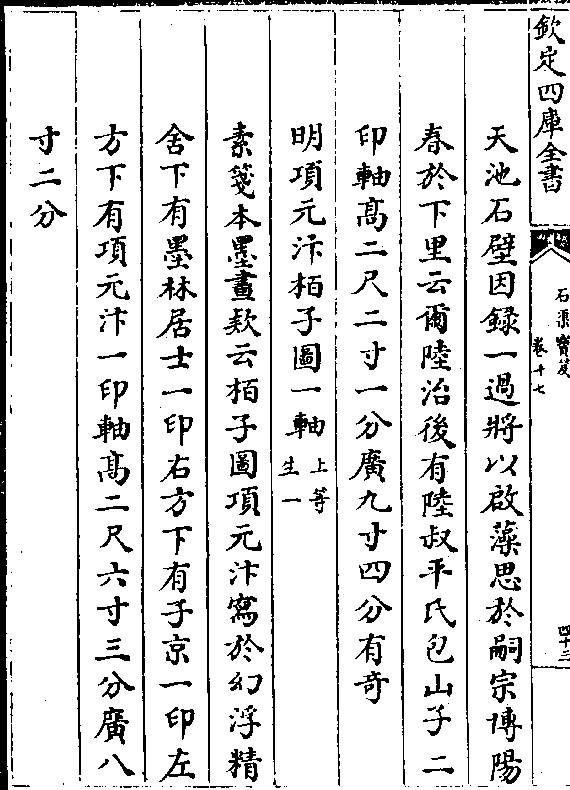 欽定四庫全書
石渠寶笈
卷十七
四十三
天池石壁因録一過將以啟藻思於嗣宗博陽
春於下里云爾陸治後有陸叔平氏包山子二
印軸髙二尺二寸一分廣九寸四分有奇
明項元汴栢子圖一軸上等
生一
素箋本墨畫款云栢子圖項元汴寫於幻浮精
舍下有墨林居士一印右方下有子京一印左
方下有項元汴一印軸髙二尺六寸三分廣八
寸二分